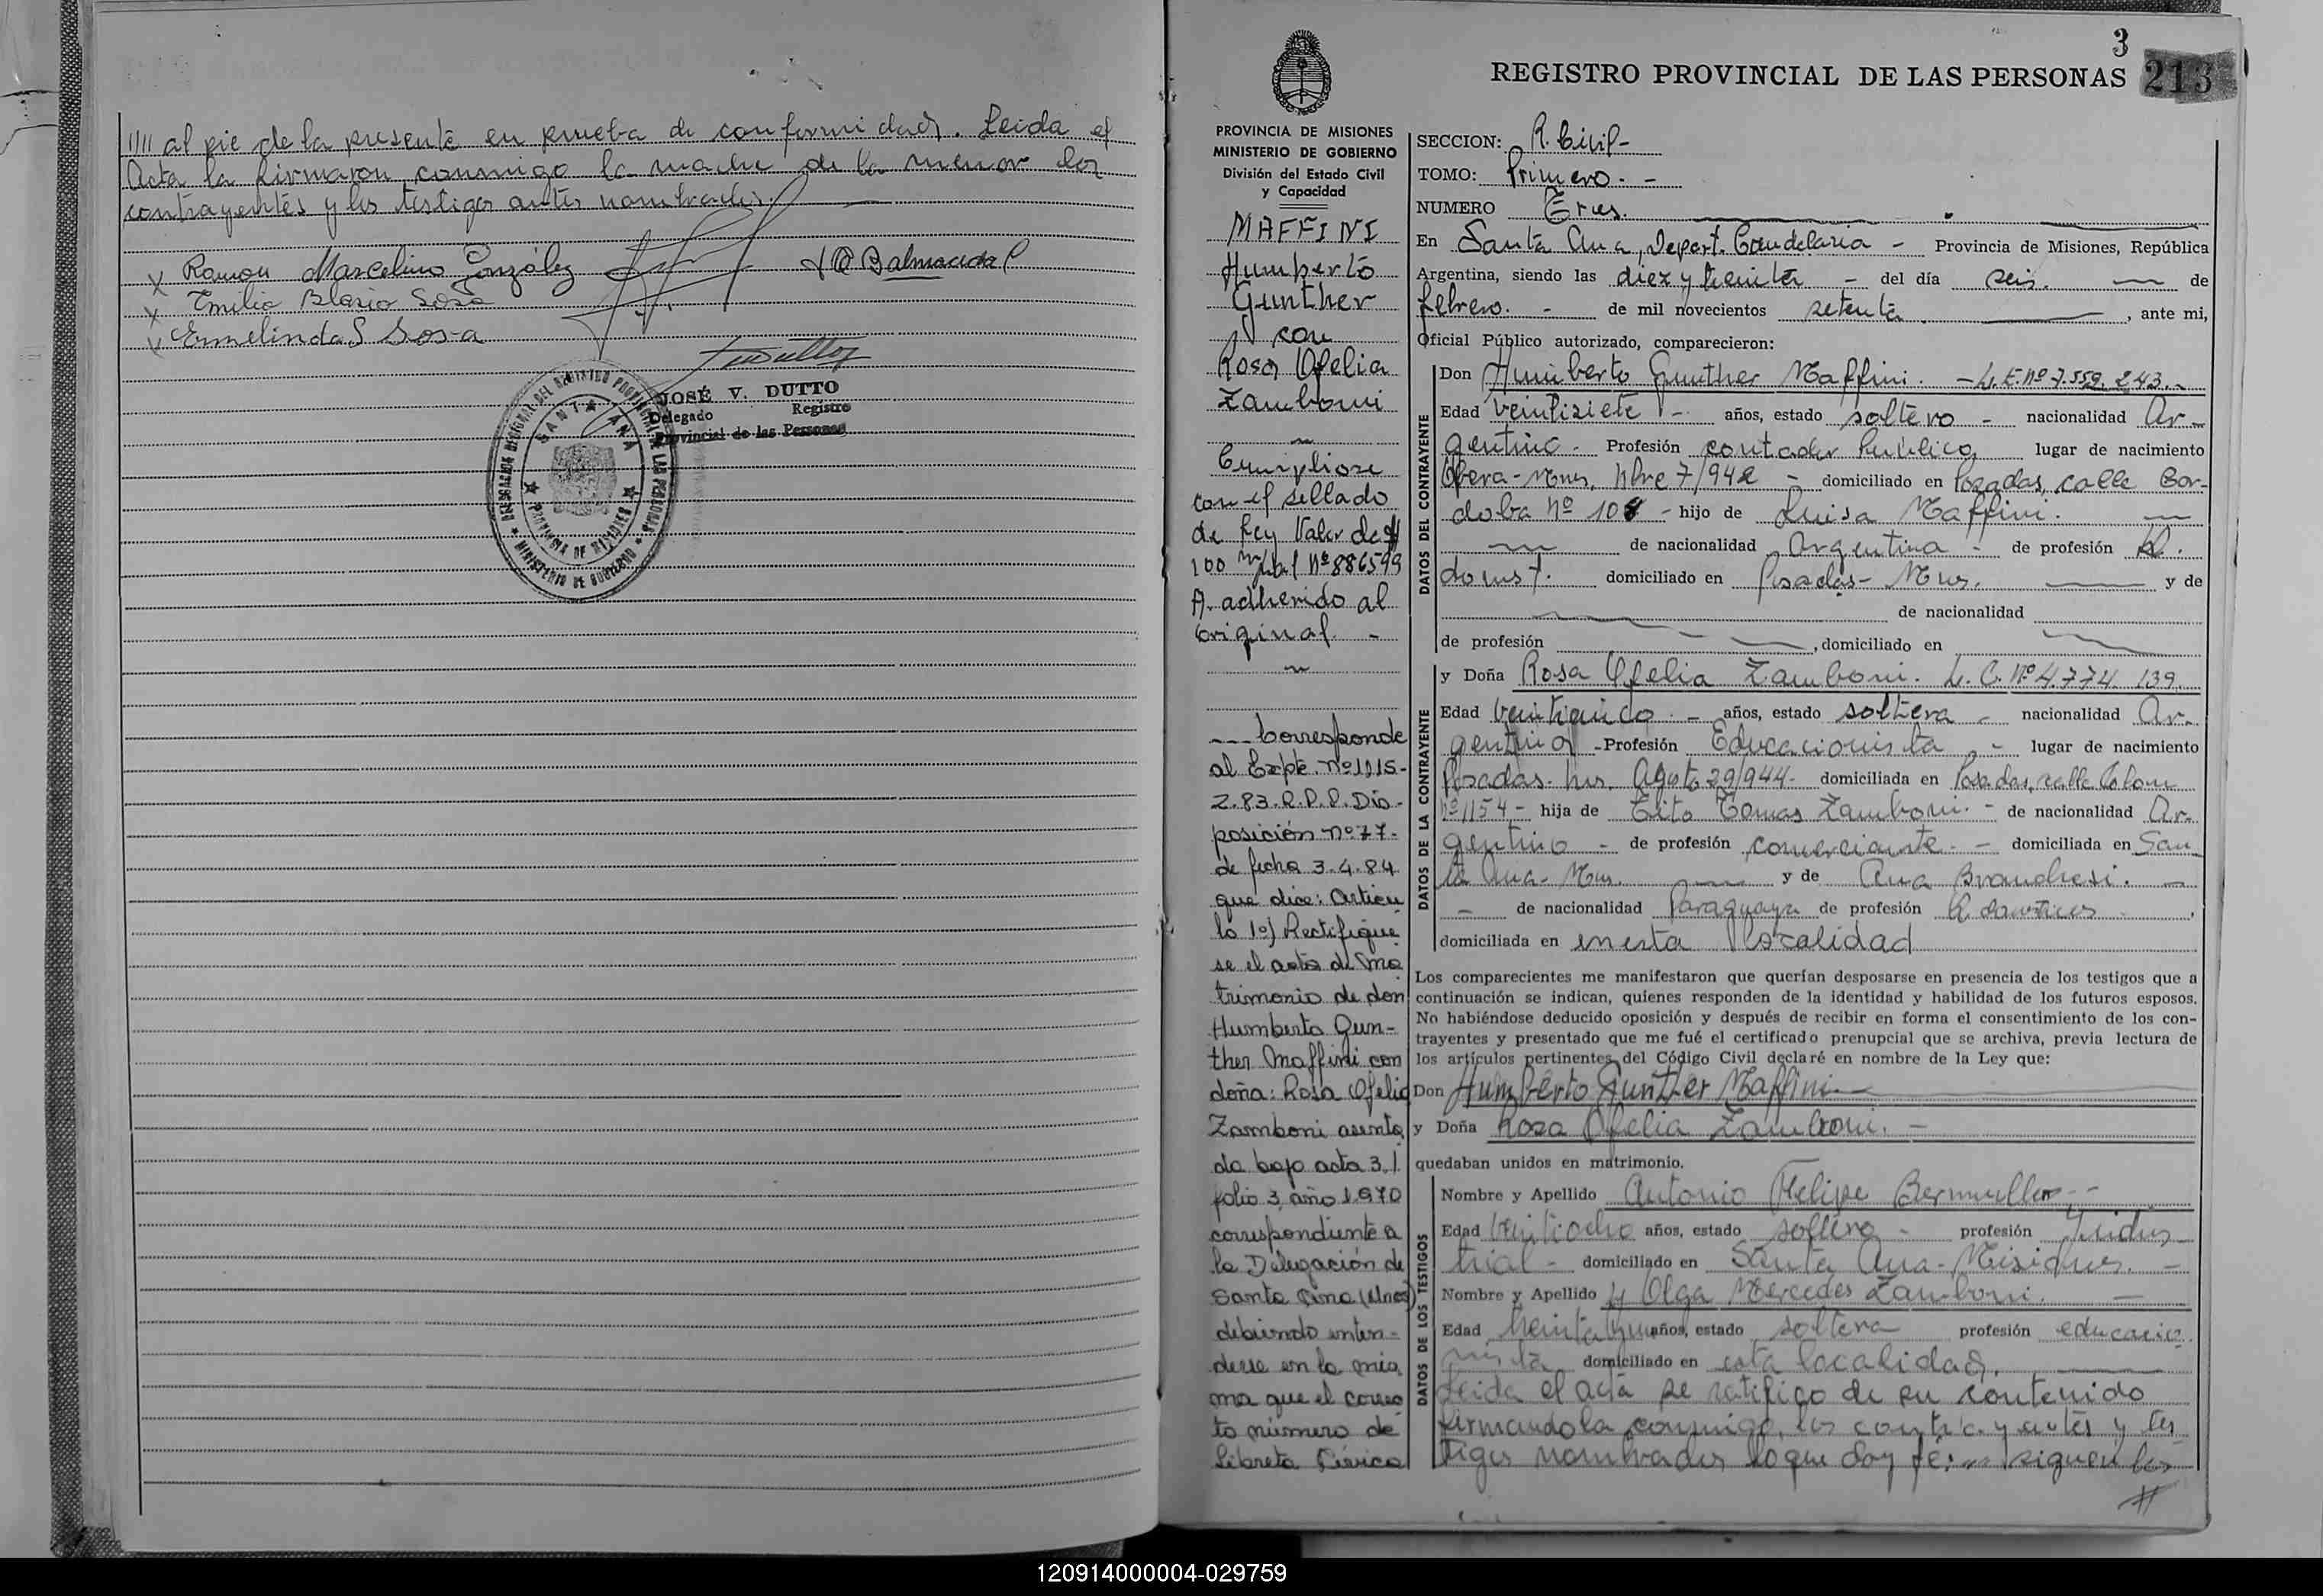 //// al pie de la presente en prueba de conformidad. Leida el
Acta la firmaron conmigo la madre de la menor los
contrayentes y los testigos antes nombrados.
x Ramon Marcelino González
x Emilio Blasio Sosa
x Ermelinda S Sosa
JOSÉ V. DUTTO
Delegado Registro
Provincial de las Personas
SANTA ANA
PROVINCIA DE MISIONES
MINISTERIO DE GOBIERNO
3
REGISTRO PROVINCIAL DE LAS PERSONAS 213
PROVINCIA DE MISIONES
MINISTERIO DE GOBIERNO
División del Estado Civil
y Capacidad
MAFFINI
Humberto
Gunther
con
Rosa Ofelia
Zamboni
Cumpliose
con el sellado
de Ley Valor de $
100 m/nal Nº 886599
A. adherido al
original. -
--- Corresponde
al Expte. nº 1115-
Z. 83. R.P.P. Dis-
posición nº 77-
de fecha 3.4.84
que dice: Artícu
lo 1º) Rectifíque
se el acta de Ma
trimonio de don
Humberto Gun-
ther Maffini con
doña: Rosa Ofelia
Zamboni asenta
da bajo acta 3, 
folio 3, año 1.970
correspondiente a
la Delegación de
Santa Ana (Mnes)
debiendo enten-
derse en la mis
ma que el correc
to número de
Libreta Cívica
SECCION: R. Civil-
TOMO: Primero. -
NUMERO Tres.
En Santa Ana, Depart. Candelaria - Provincia de Misiones, República
Argentina, siendo las diez y treinta - del día seis. de
febrero. - de mil novecientos setenta , ante mi,
Oficial Público autorizado, comparecieron:
DATOS DEL CONTRAYENTE
Don Humberto Gunther Maffini. - L.E. nº 7.559.243.-
Edad veintisiete - años, estado soltero - nacionalidad Ar-
gentino - Profesión contador Público lugar de nacimiento
Obera-Mnes, Nbre 7/942 - domiciliado en Posadas, calle Cor-
doba nº 108 - hijo de Luisa Maffini.
de nacionalidad Argentina - de profesión Q.
domest. domiciliado en Posadas- Mnes. y de
de nacionalidad
de profesión , domiciliado en
DATOS DE LA CONTRAYENTE
y Doña Rosa Ofelia Zamboni. L.C. Nº 4.774.139.
Edad veinticinco. - años, estado soltera - nacionalidad Ar-
gentina - Profesión Educacionista - lugar de nacimiento
Posadas- Mns. Agosto 29/944- domiciliada en Posadas, calle Colon
nº 1154 - hija de Tito Tomas Zamboni. - de nacionalidad Ar-
gentino - de profesión comerciante - domiciliada en San
ta Ana- Mns. y de Ana Brandresi. -
- de nacionalidad Paraguaya de profesión Q. domesticos
domiciliada en en esta localidad
Los comparecientes me manifestaron que querían desposarse en presencia de los testigos que a
continuación se indican, quienes responden de la identidad y habilidad de los futuros esposos.
No habiéndose deducido oposición y después de recibir en forma el consentimiento de los con-
trayentes y presentado que me fué el certificado prenupcial que se archiva, previa lectura de
los artículos pertinentes del Código Civil declaré en nombre de la Ley que:
Don Humberto Gunther Maffini.
y Doña Rosa Ofelia Zamboni. -
quedaban unidos en matrimonio.
DATOS DE LOS TESTIGOS
Nombre y Apellido Antonio Felipe Bermuller--
Edad Veintiocho años, estado soltero - profesión Indus-
trial - domiciliado en Santa Ana- Misiones. -
Nombre y Apellido y Olga Mercedes Zamboni.
Edad treinta y un años, estado soltera profesión educacio
nista domiciliado en esta localidad.
Leida el acta se ratifico de su contenido
firmandola conmigo, los contrayentes y tes
tigos nombrados lo que doy fé: siguen las
//
120914000004-029759